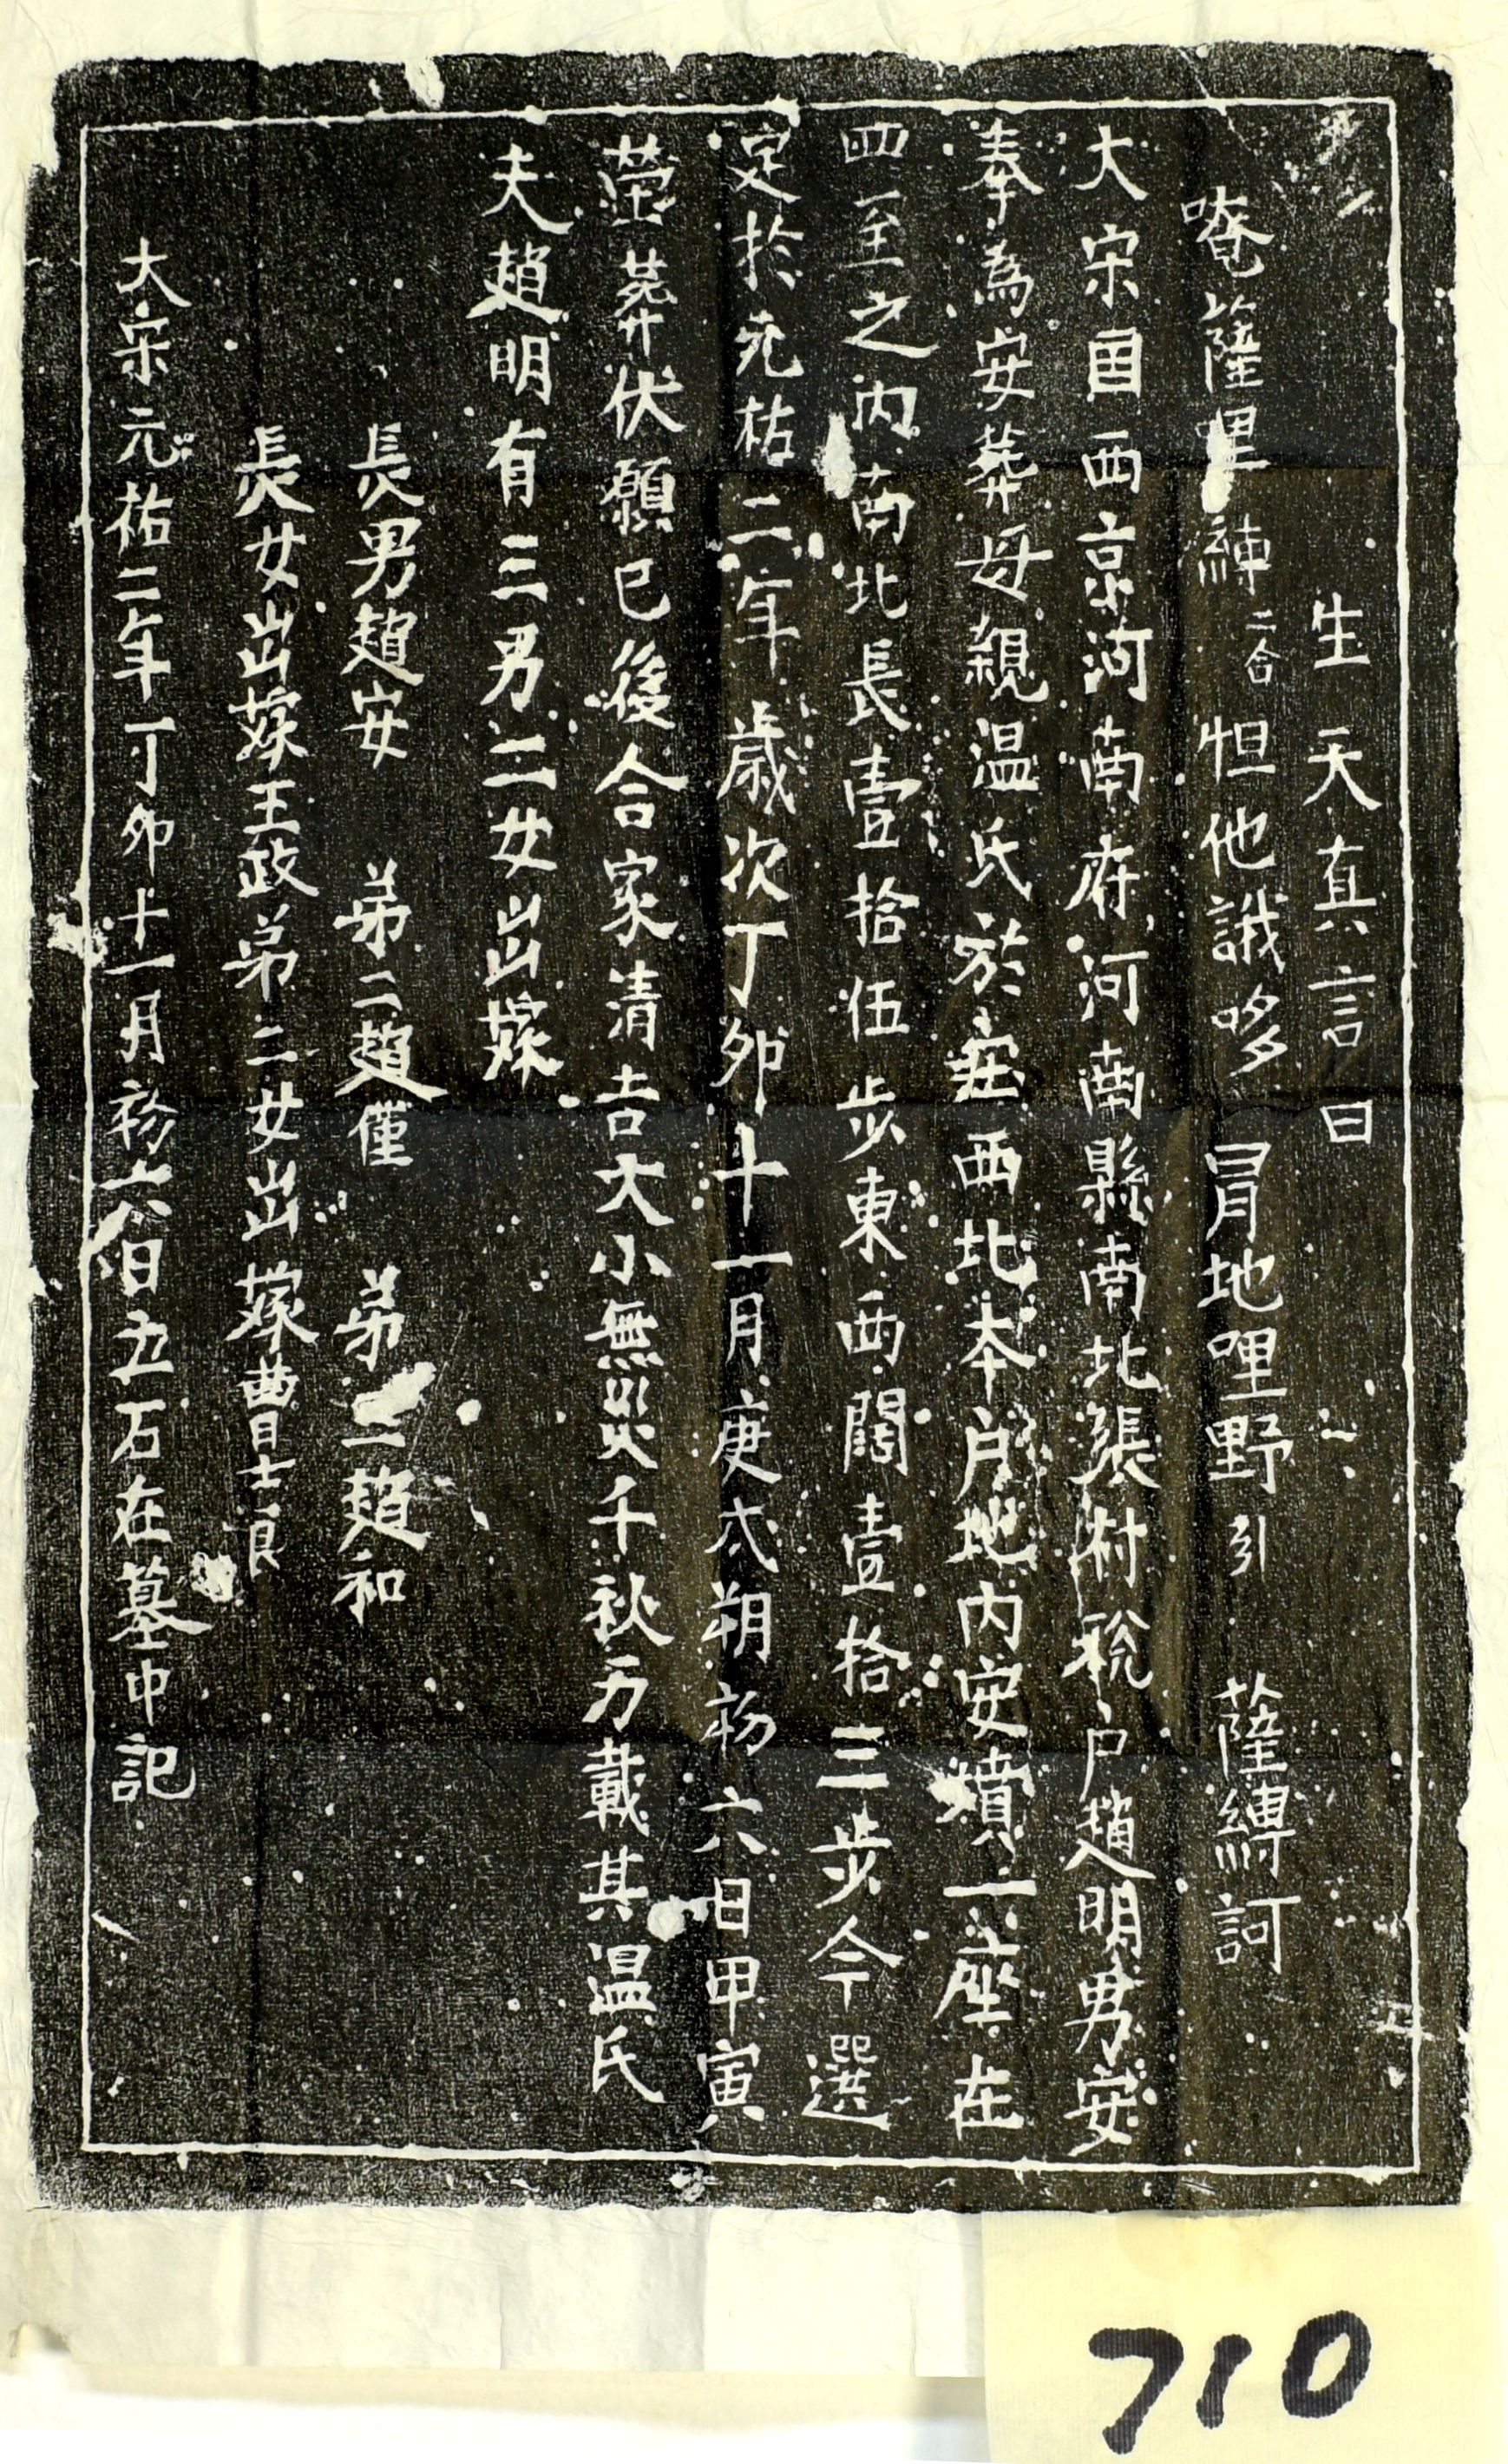 生天真言曰
唵薩哩縛二合怛他誐哆冐地哩野引薩縛訶
大宋国西京河南府河南縣南北張村稅户趙明男安
奉為安葬母親温氏於莊西北本户地内安墳一座在
四至之内南北長壹拾伍步東西闊壹拾三步今選
定扵元祐二年歲次丁卯十一月庚戌朔初六日甲寅
塋葬伏願已後合家清吉大小無災千秋万載其温氏
夫趙明有三男二女出嫁
長男趙安　弟二趙僅　弟三趙和
長女出嫁王政弟二女出嫁曹士良
大宋元祐二年丁卯十一月初六日立石在墓中記
710